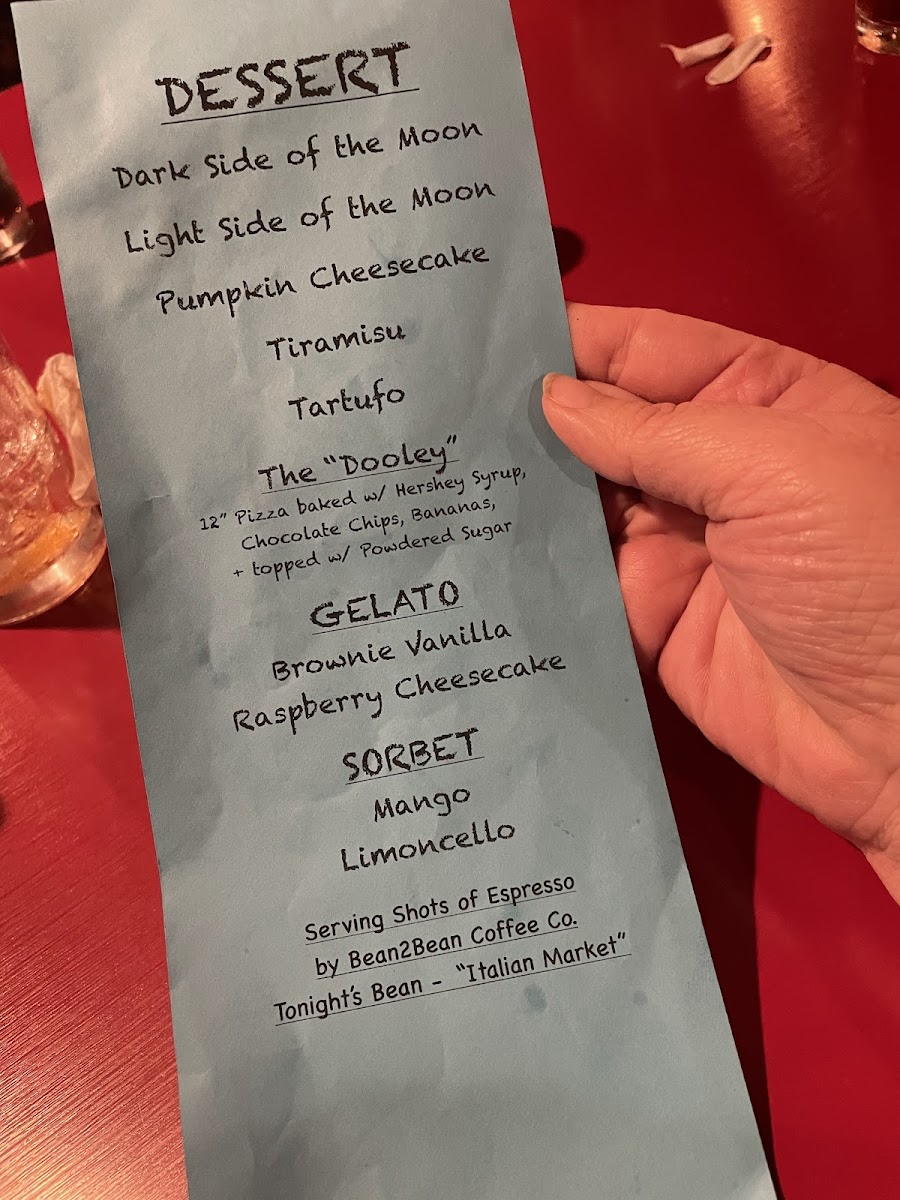 DESSERT
Dark Side of the Moon
Light Side of the Moon
Pumpkin Cheesecake
Tiramisu
Tartufo
The "Dooley"
12" Pizza baked w/ Hershey Syrup,
Chocolate Chips, Bananas,
+ topped w/ Powdered Sugar
GELATO
Brownie Vanilla
Raspberry Cheesecake
SORBET
Mango
Limoncello
Serving Shots of Espresso
by Bean2Bean Coffee Co.
Tonight's Bean - "Italian Market"